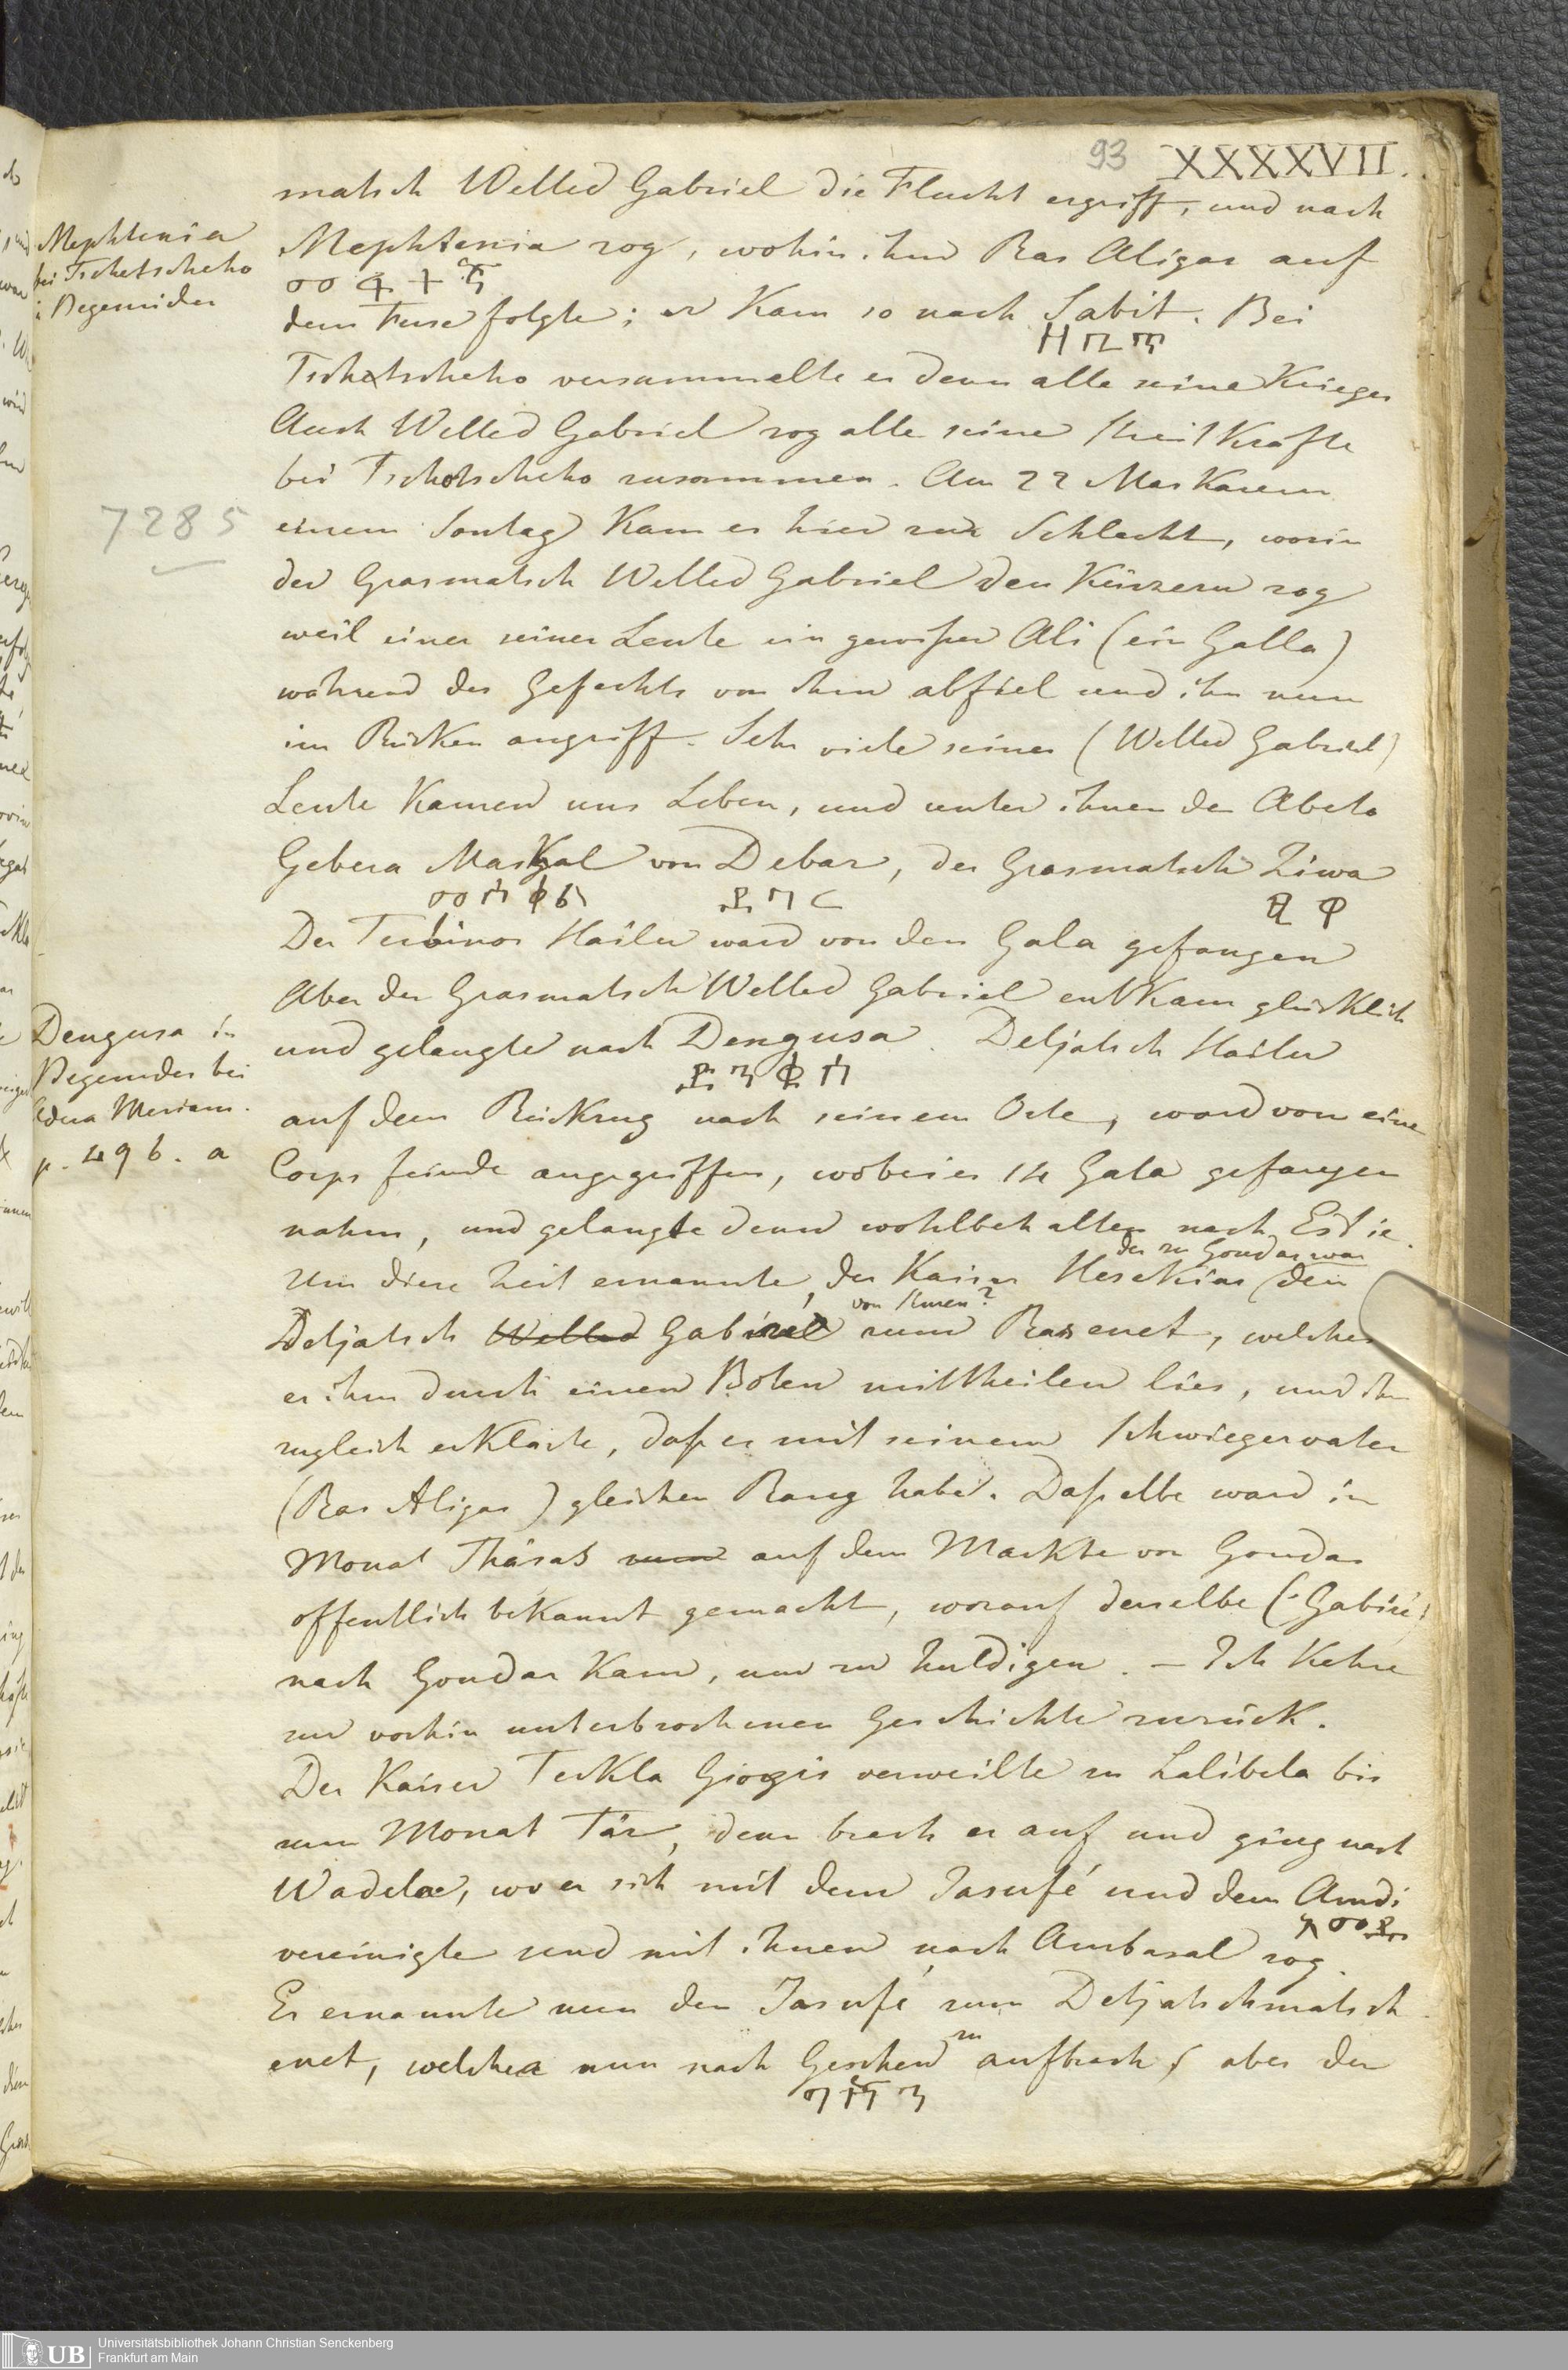 93 XXXXVII.
matsch Welled Gabriel die Flucht ergriff, und nach
Mephtenia
bei Tschetscheho
i Begemider
Mephtenia zog, wohin ihm Ras Aligas auf
dem Fuse folgte; er kam so nach Sabit. Bei
Tschetscheho versammelte er denn alle seine Krieger
Auch Welled Gabriel zog alle seine Streitkräfte
bei Tschetscheho zusammen. Am 22 Maskarem
7285
einem Sontag kam es hier zur Schlacht, worin
der Grasmatsch Welled Gabriel den Kürzern zog
weil einer seiner Leute ein gewißer Ali (ein Galla)
während des Gefechts von ihm abfiel und ihn nun
im Rücken angriff. Sehr viele seiner (Welled Gabriel)
Leute kamen ums Leben, und unter ihnen der Abeto
Gebera Maskal von Debar, der Grasmatsch Ziwa
መስቀል ደብር ዚዋ
Der Turbinos Hailu ward von den Gala gefangen
Aber der Grasmatsch Welled Gabriel entkam glücklich
Dengusa in
Begemder bei
Edna Meriam.
p. 496. a
und gelangte nach Dengusa. Detjatsch Hailu
auf dem Rückzug nach seinem Orte, ward von eine
Corps feinde angegriffen, wobei er 14 Gala gefangen
nahm, und gelangte denn wohlbehalten nach Estie.
der zu Gondar war
Um diese Zeit ernannte, der Kaiser Heskias den
von Simen?
Detjatsch Welled Gabriel zum Ras enet, welches
er ihm durch einen Boten mittheilen lies, und ihm
zugleich erklärte, daß er mit seinem Schwiegervater
(Ras Aligas) gleichen Rang habe. Daßelbe ward im
Monat Thäsas auf dem Markte von Gondar
offentlich bekannt gemacht, worauf derselbe (Gabriel)
nach Gondar kam, um zu huldigen. — Ich kehre
zur vorhin unterbrochenen Geschichte zurück.
Der Kaiser Tekla Giorgis verweilte zu Lalibela bis
zum Monat Tär, denn brach er auf und ging nach
Wadela, wo er sich mit dem Jasufé und dem Amdi
vereinigte und mit ihnen nach Ambasal zog.
Er ernannte nun den Jasufé zum Detjatschmatsch
enet, welcher nun nach Geschen zu aufbrach, aber der
ግሸን
Universitätsbibliothek Johann Christian Senckenberg
Frankfurt am Main
UB